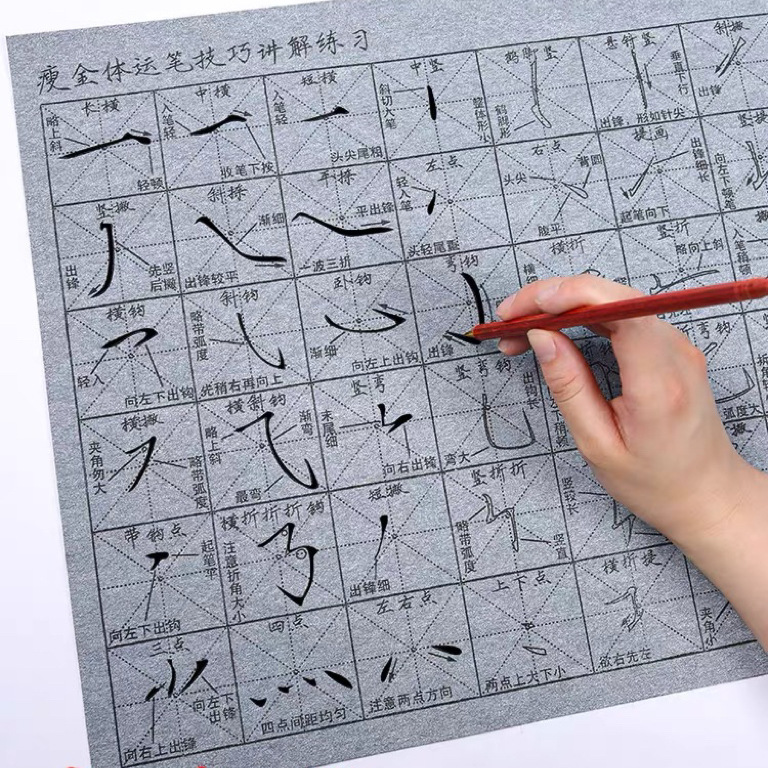 瘦金体运笔技巧讲解练习
长横
略上斜
轻顿
中横
入笔轻
收笔下按
短横
入笔轻
头尖尾粗
中竖
斜切大笔
鹤脚竖
鹤腿形
整体形小
悬针竖
出锋
形如针尖
垂直平行
斜撇
出锋
竖撇
出锋
先竖后撇
斜捺
渐细
出锋较平
平捺
平出锋
一波三折
左点
轻入笔
头轻尾重
右点
头尖
背圆
腹平
提画
出锋细长
起笔向下
向左下顿笔
横钩
轻入
向左下出钩
斜钩
略带弧度
先稍右再向上
卧钩
渐细
向左上出钩
弯钩
出锋
横折
竖折
略向上斜
横撇
夹角勿大
略带弧度
横斜钩
略上斜
渐弯
最弯
竖弯
末尾细
向右出锋
竖弯钩
弯大
弧度大
带钩点
起笔平
向左下出钩
横折折折钩
注意折角大小
短撇
出锋细
竖折折
略带弧度
竖直
竖较长
三点
向左下出锋
向右上出锋
四点
四点间距均匀
左右点
注意两点方向
上下点
两点上大下小
横折提
欲右先左
夹角小